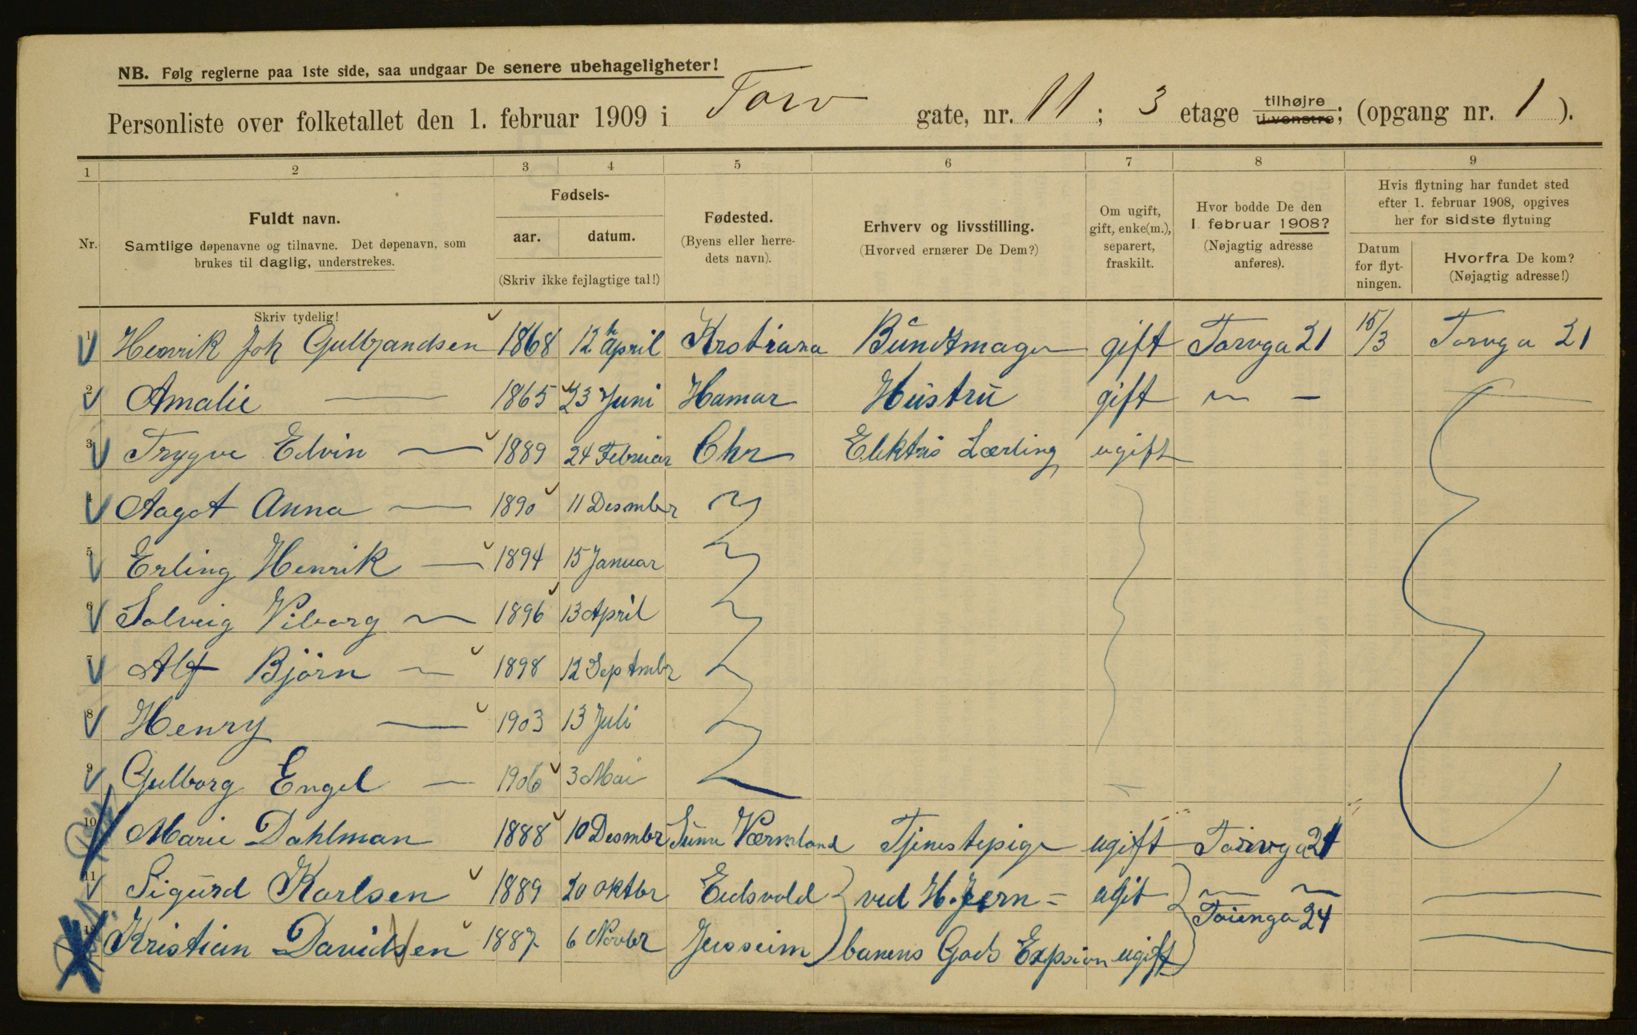 NB. Følg reglerne paa 1ste side, saa undgaar De senere ubehageligheter!
Personliste over folketallet den 1. februar 1909 i Torv gate, nr. 11 ; 3 etage tilhøjre til venstre; (opgang nr. 1 ).
1 2 3 4 5 6 7 8 9
Nr. Fuldt navn. Samtlige døpenavne og tilnavne. Det døpenavn, som brukes til daglig, understrekes.
Fødsels- aar. datum. (Skriv ikke fejlagtige tal!)
Fødested. (Byens eller herredets navn).
Erhverv og livsstilling. (Hvorved ernærer De Dem?)
Om ugift, gift, enke(m.), separert, fraskilt.
Hvor bodde De den 1. februar 1908? (Nøjagtig adresse anføres).
Hvis flytning har fundet sted efter 1. februar 1908, opgives her for sidste flytning
Datum for flytningen. Hvorfra De kom? (Nøjagtig adresse!)
Skriv tydelig!
1 Henrik Joh Gulbrandsen 1868 12 april Kristiana Bundtmager gift Torvga 21 15/3 Torvga 21
2 Amalie — 1865 23 Juni Hamar Hustru gift — —
3 Trygve Edvin — 1889 24 Februar Chr Elektris Lærling ugift
4 Aagot Anna — 1890 11 Desmber
5 Erling Henrik — 1894 15 Januar
6 Solveig Viborg — 1896 13 April
7 Alf Björn — 1898 12 Septmbr
8 Henry — 1903 13 Juli
9 Gulborg Engel — 1906 3 Mai
10 Marie Dahlman 1888 10 Desmbr Sunne Værmland Tjenestepige ugift Torvga 21
11 Sigurd Karlsen 1889 20 oktbr Eidsvold ved H.jern= ugift — —
12 Kristian Davidsen 1887 6 Novbr Jessheim banens Gods Expsion ugift Tøienga 24